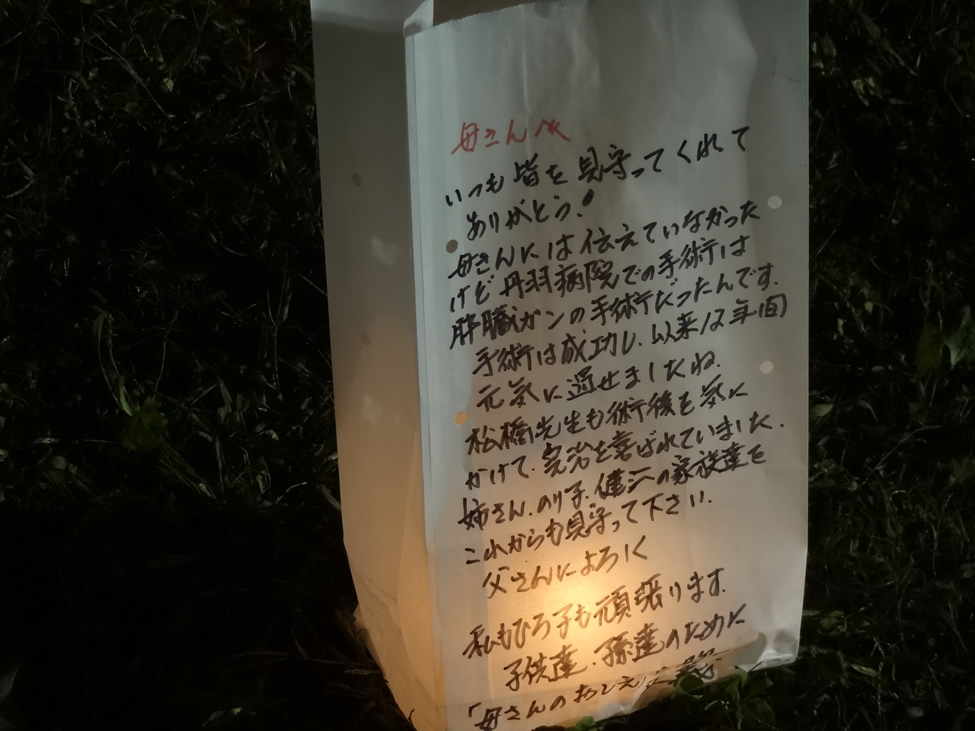 母さんへ
いつも皆を見守ってくれて
ありがとう!
母さんには伝えていなかった
けど丹羽病院での手術は
肝臓ガンの手術だったんです.
手術は成功し、以来12年間
元気に過せましたね.
松橋先生も術後を気に
かけて、完治を喜ばれていました.
姉さん、のり子、健二の家族達を
これからも見守って下さい.
父さんによろしく
私もひろ子も頑張ります.
子供達、孫達のために
「母さんのおしえ